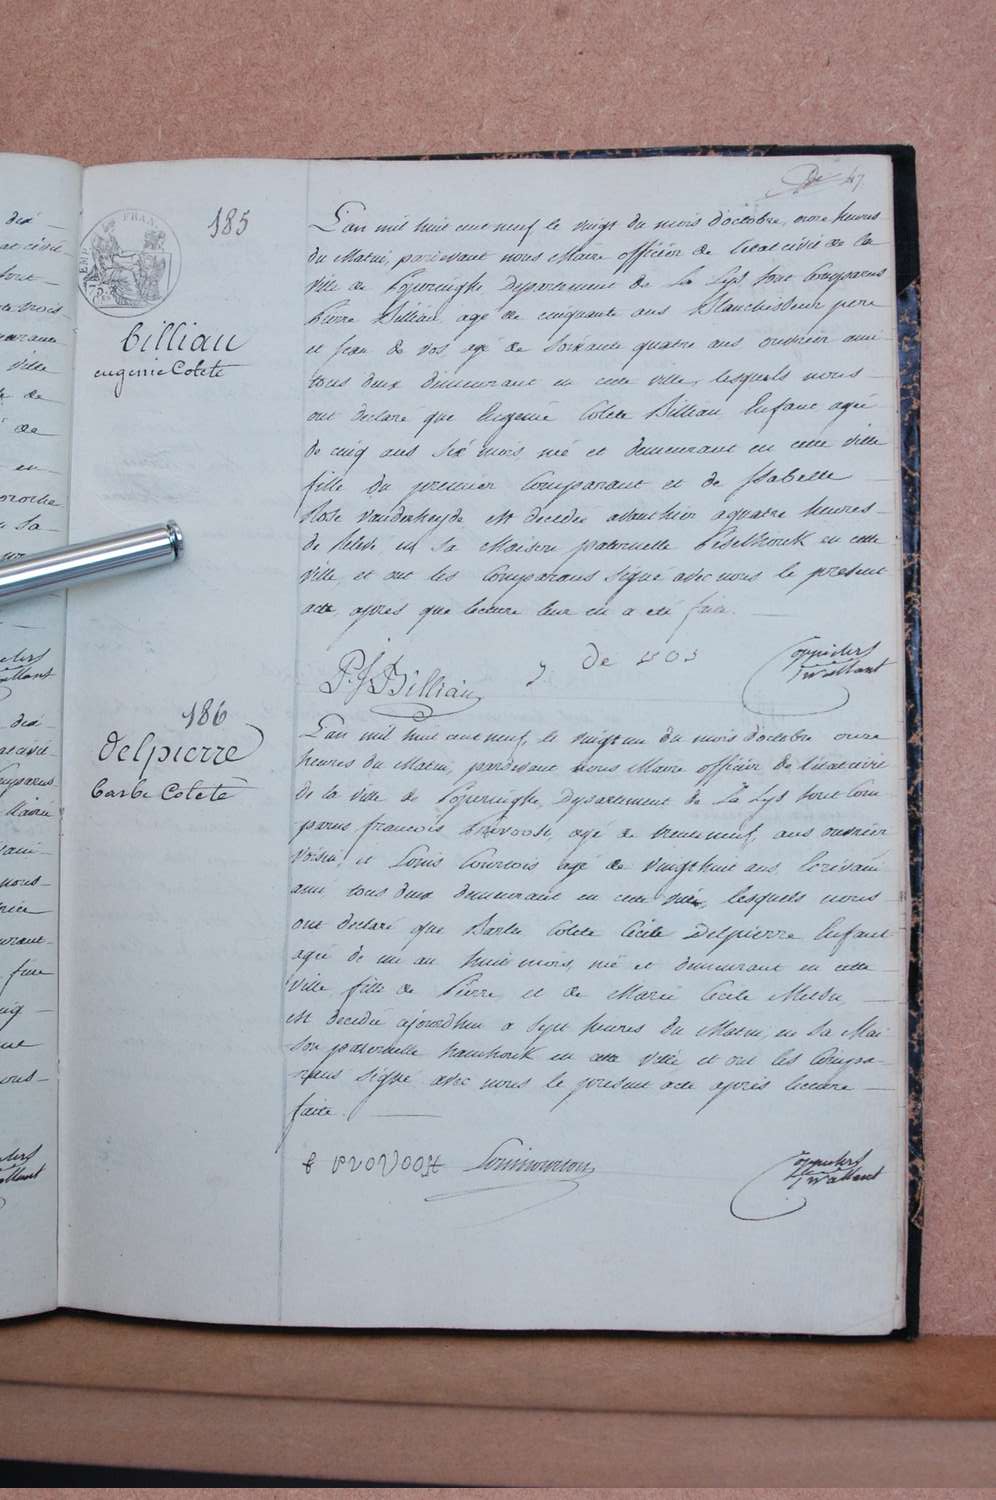 47
185
Billiau
eugenie Colete
L'an mil huit cent neuf le vingt du mois d'octobre, onze heures
du Matin, pardevant nous Maire officier de l'état civil de la
ville de Poperinghe Departement de La Lys sont Comparus
Pierre Billiau, agé de cinquante ans Blanchisseur pere
et Jean de vos agé de soixante quatre ans ouvrier ami
tous deux demeurant en cette ville, lesquels nous
ont declaré que Eugenie Colete Billiau Enfant agée
de cinq ans six mois, née et demeurant en cette ville
fille du premier Comparant et de Isabelle
Rose Vanderheyde est decedée avant hier a quatre heures
de relevée, en sa Maison paternelle en cette
ville, et ont les Comparans signé avec nous le present
acte, apres que lecture leur en a été faite.
P. J. Billiau J de vos
186
Delpierre
barbe Colete
L'an mil huit cent neuf, le vingt un du mois d'octobre onze
heures du Matin, pardevant nous Maire officier de l'état civil
de la ville de Poperinghe, Departement de La Lys sont Com
parus francois Provoost, agé de trente neuf ans ouvrier
Voisin, et Louis Courtois agé de vingt huit ans, Ecrivain
ami, tous deux demeurant en cette ville, lesquels nous
ont declaré que Barbe Colete Cecile Delpierre Enfant
agée de un an huit mois, née et demeurant en cette
ville, fille de Pierre, et de Marie Cecile
est decedée ajourdhui a sept heures du Matin, en sa Mai
son paternelle en cette ville et ont les Compa-
rans signé avec nous le present acte après lecture
faite.
f provoost Louis courtois